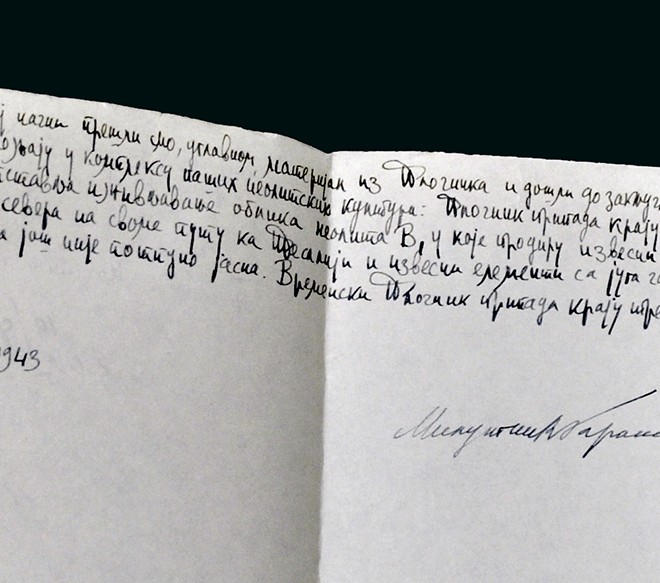 ј начин прешли смо, углавном, материјал из Плочника и дошли до закључ
ј у комплексу наших неолитских култура: Плочник припада крају
ставља иживљавање облика неолита B, у које продиру извесни
севера на своме путу ка Тесалији и извесни елементи са југа
а још није потпуно јасна. Временски Плочник припада крају тре
1943
Милутин Гараша